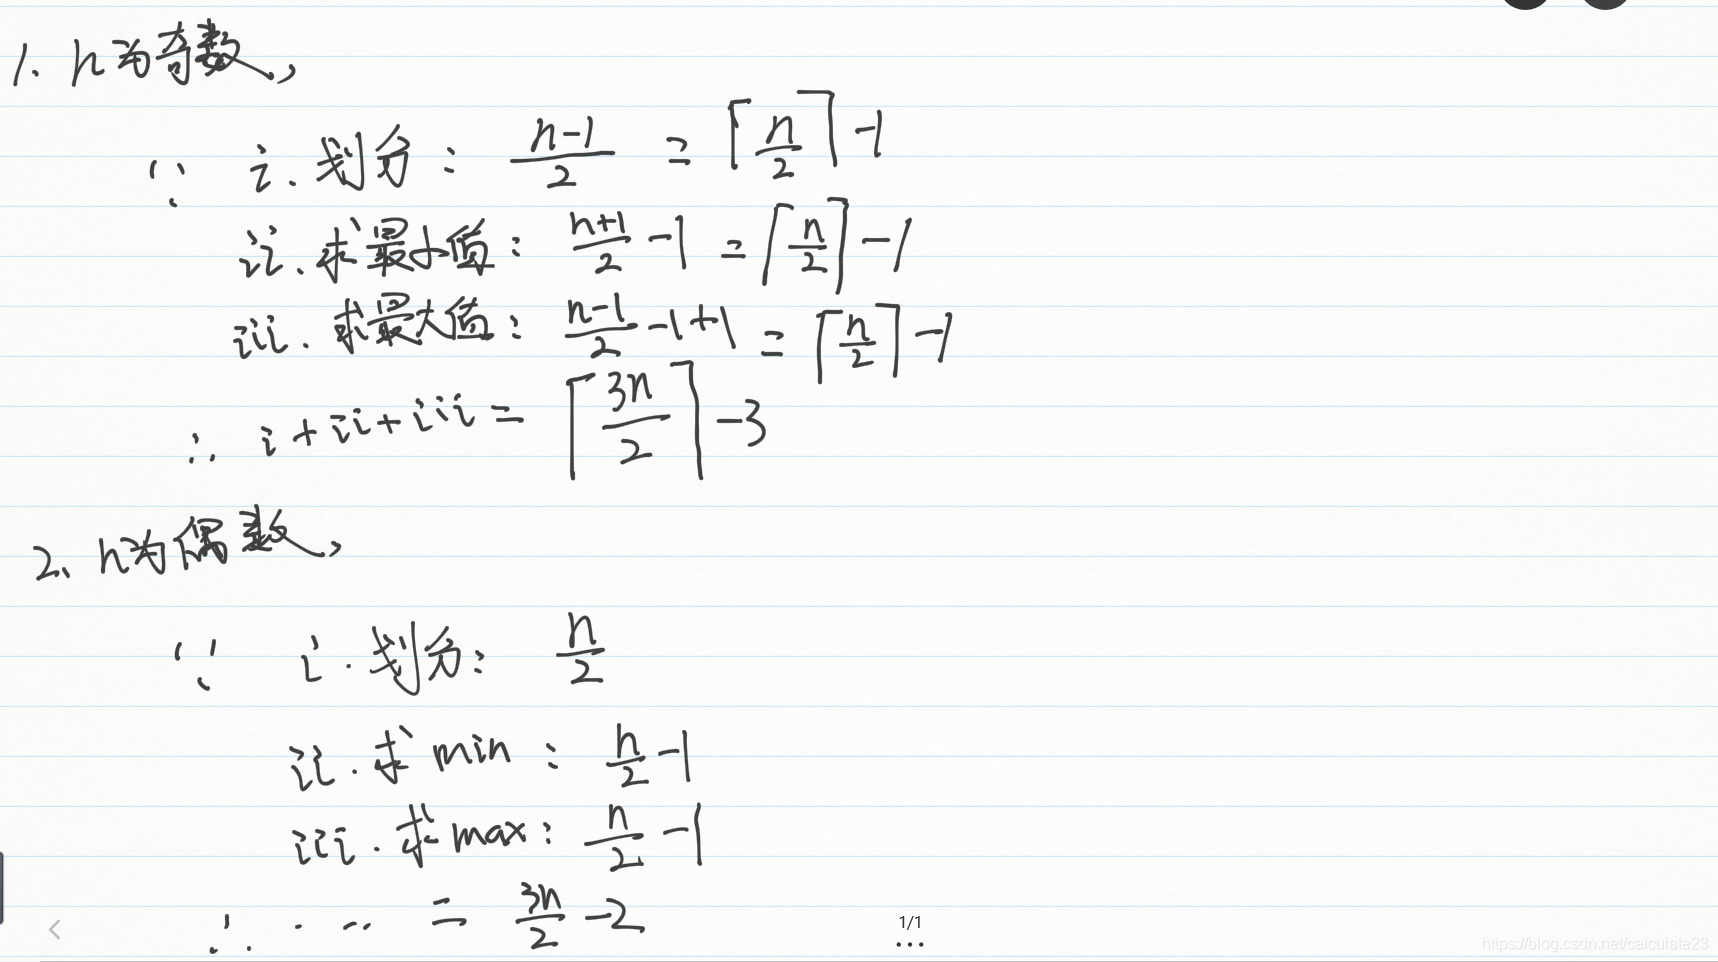 1. n为奇数,
∵ i. 划分: (n-1)/2 = ⌈n/2⌉ -1
ii. 求最小值: (n+1)/2 -1 = ⌈n/2⌉ -1
iii. 求最大值: (n-1)/2 -1+1 = ⌈n/2⌉ -1
∴ i+ii+iii = ⌈3n/2⌉ -3
2、n为偶数,
∵ i. 划分: n/2
ii. 求min: n/2 -1
iii. 求max: n/2 -1
∴ ... = 3n/2 -2
1/1
https://blog.csdn.net/calculate23